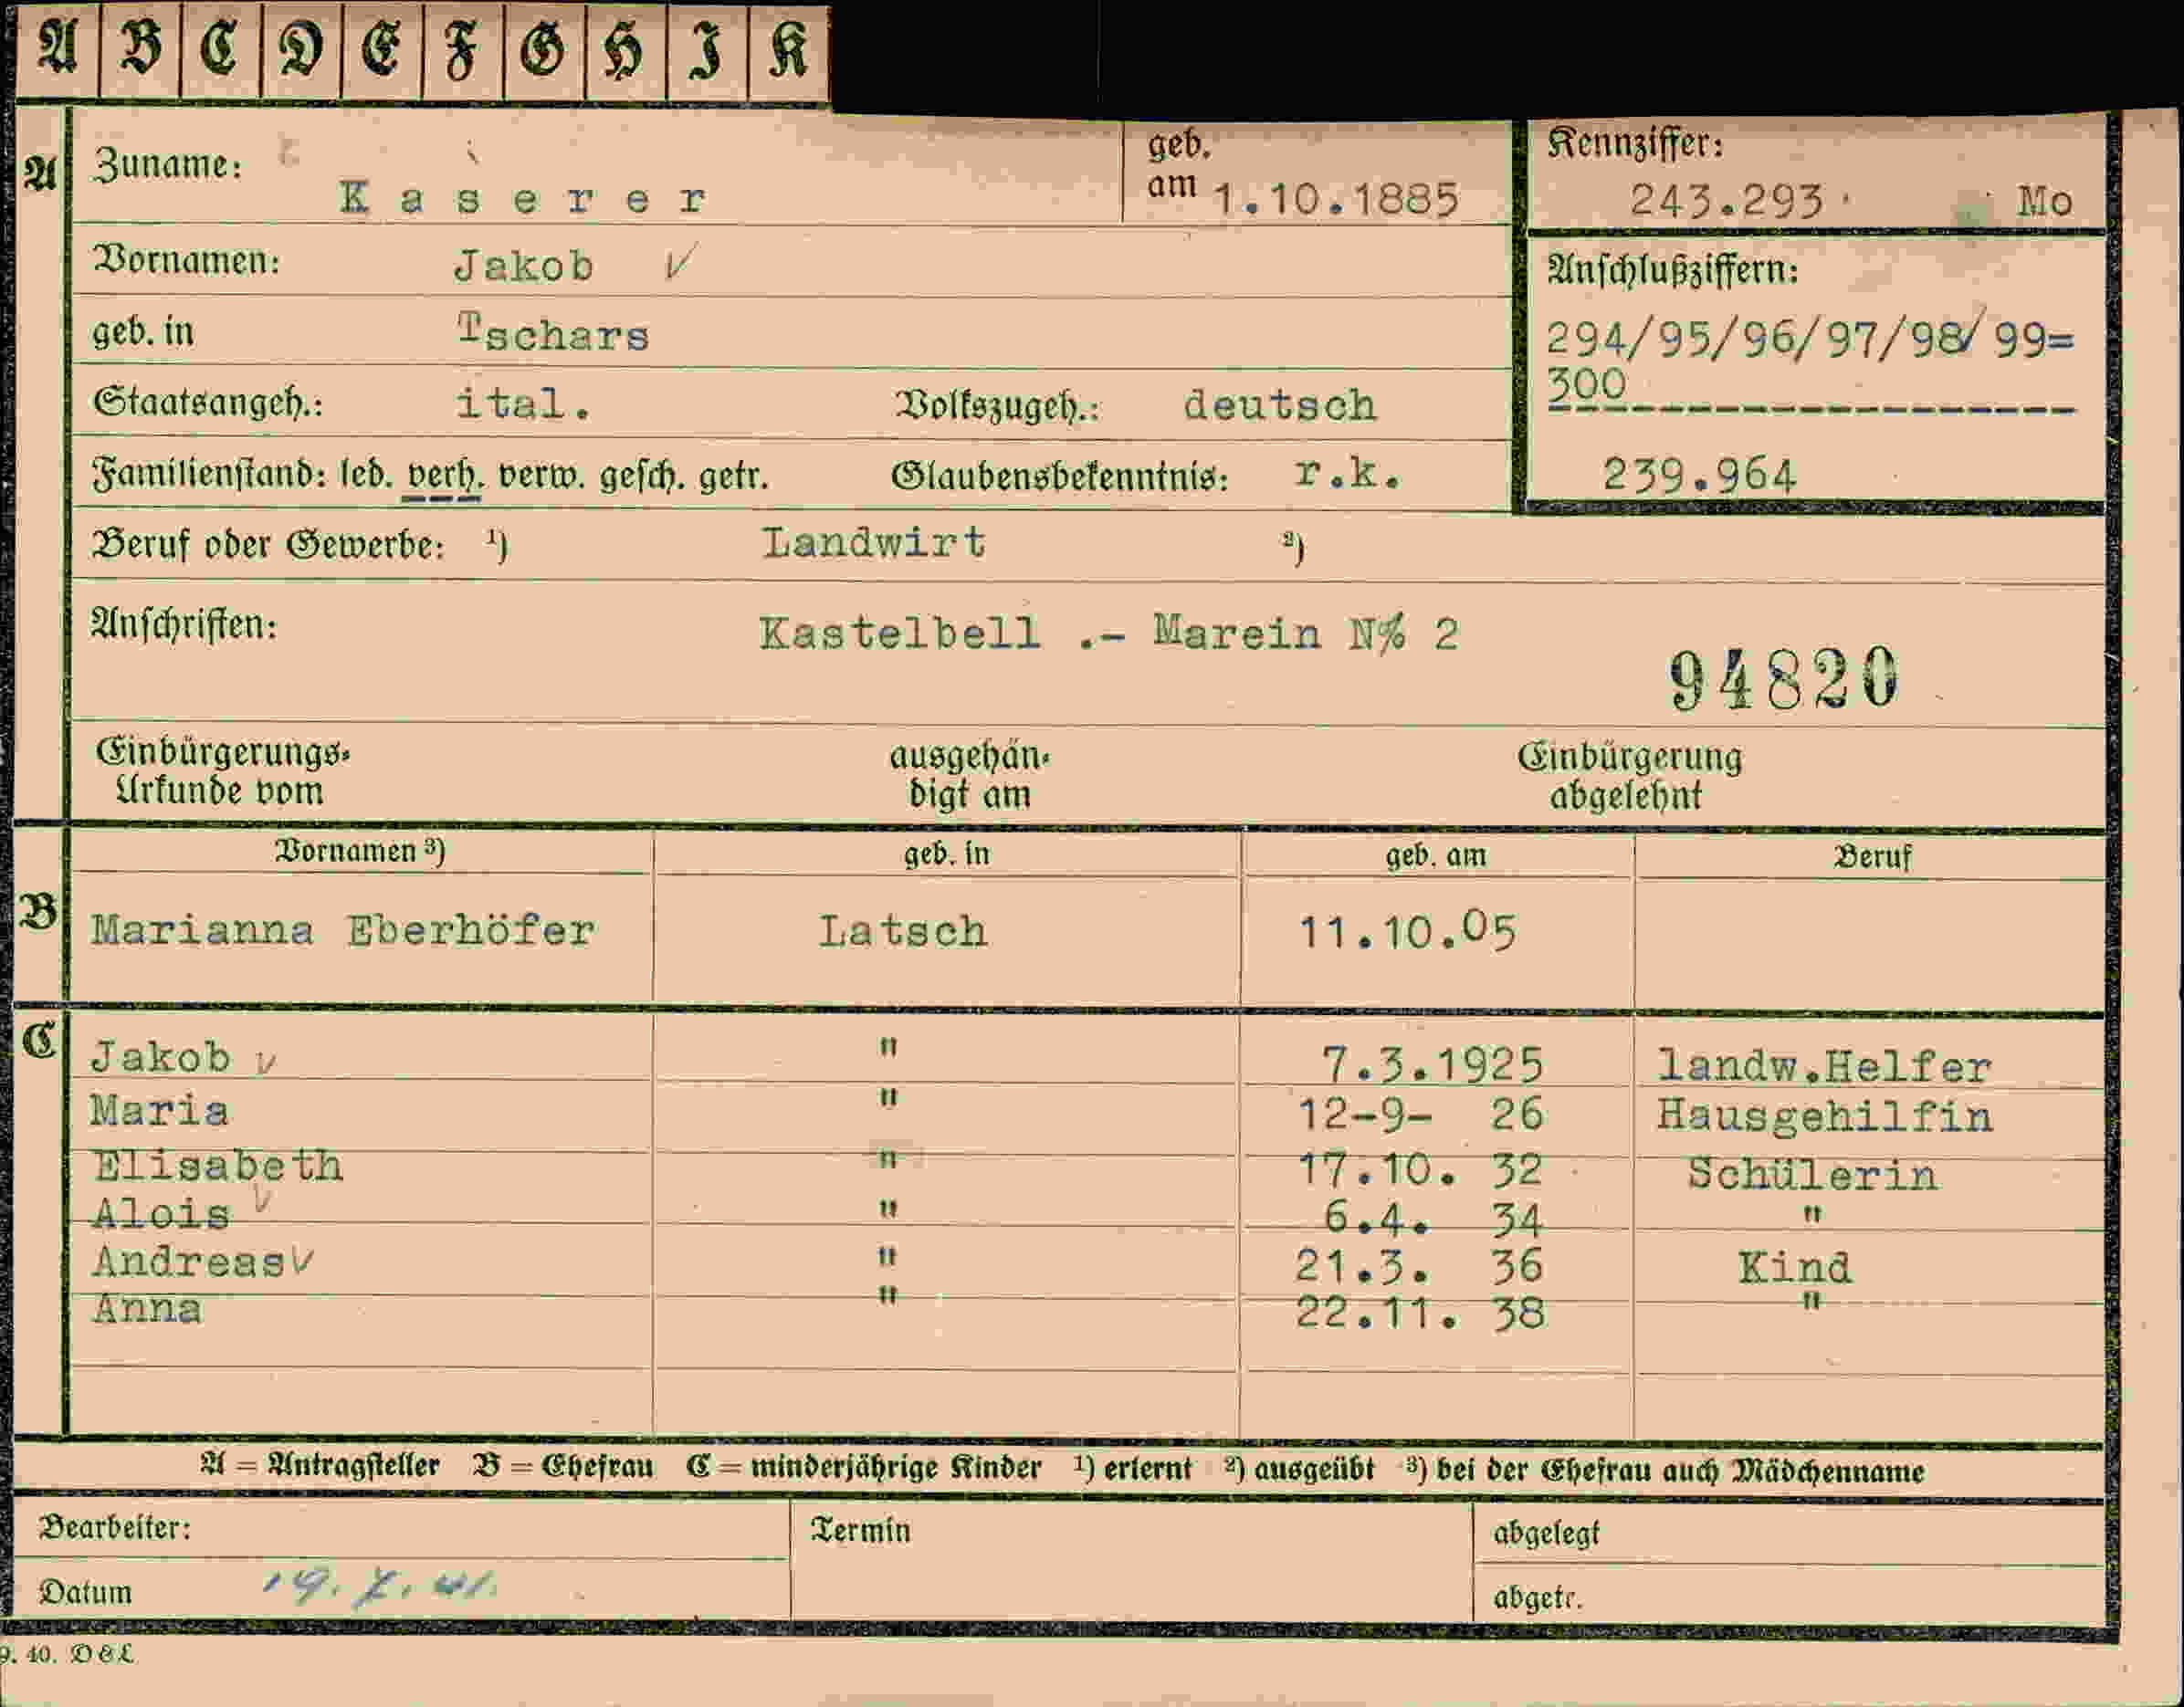 A B C D E F G H I K
A
Zuname: Kaserer
geb. am 1.10.1885
Kennziffer:
243.293 Mo
Vornamen: Jakob ✓
Anschlußziffern:
294/95/96/97/98/99=
300
239.964
geb. in Tschars
Staatsangeh.: ital. Volkszugeh.: deutsch
Familienstand: led. verh. verw. gesch. getr. Glaubensbekenntnis: r.k.
Beruf oder Gewerbe: ¹) Landwirt ²)
Anschriften: Kastelbell .- Marein N% 2
94820
Einbürgerungs- ausgehän- Einbürgerung
Urkunde vom digt am abgelehnt
B
Vornamen ³) geb. in geb. am Beruf
Marianna Eberhöfer Latsch 11.10.05
C
Jakob ✓ " 7.3.1925 landw.Helfer
Maria " 12-9- 26 Hausgehilfin
Elisabeth " 17.10. 32 Schülerin
Alois ✓ " 6.4. 34 "
Andreas ✓ " 21.3. 36 Kind
Anna " 22.11. 38 "
A = Antragsteller B = Ehefrau C = minderjährige Kinder ¹) erlernt ²) ausgeübt ³) bei der Ehefrau auch Mädchenname
Bearbeiter: Termin abgelegt
Datum 19.7.41. abgetr.
9. 40. D&L